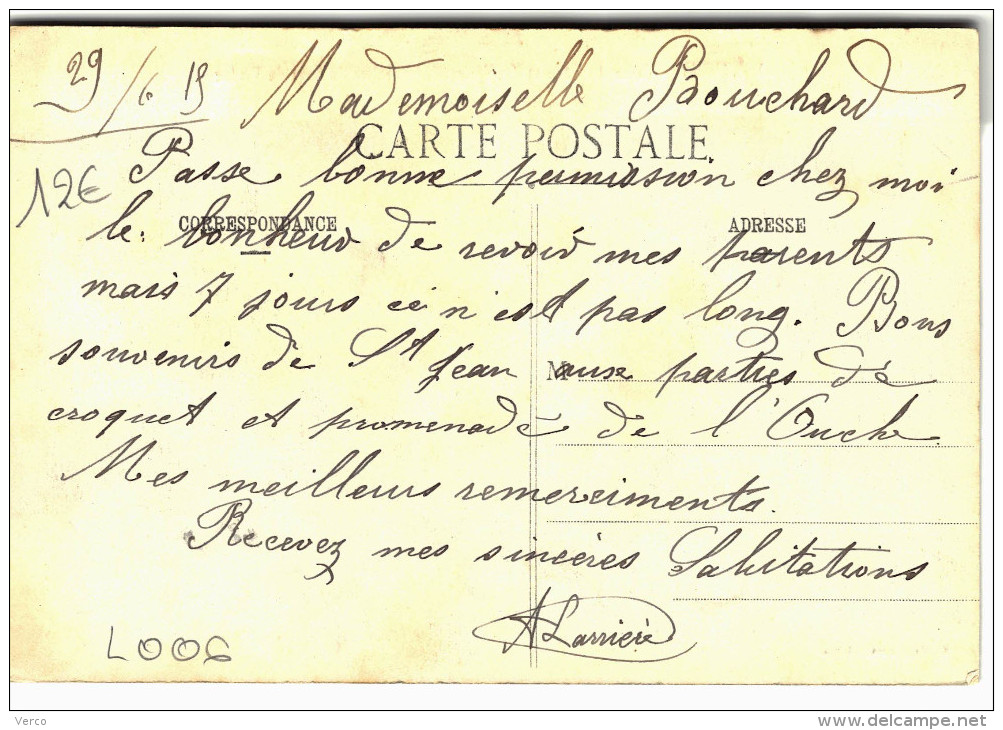 29/6 15 Mademoiselle Bouchard
CARTE POSTALE
12€
Passe bonne permission chez moi
CORRESPONDANCE
ADRESSE
le bonheur de revoir mes parents
mais 7 jours ce n'est pas long. Bons
souvenirs de St Jean aux parties de
M
croquet et promenade de l'Ouche
Mes meilleurs remerciments.
Recevez mes sincères Salutations
A Larrieré
L006
Verco
http://www.delcampe.net